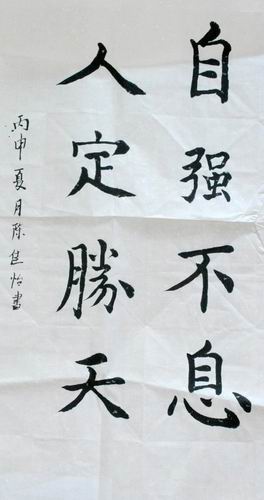 自强不息
人定勝天
丙申夏月陈佳怡書